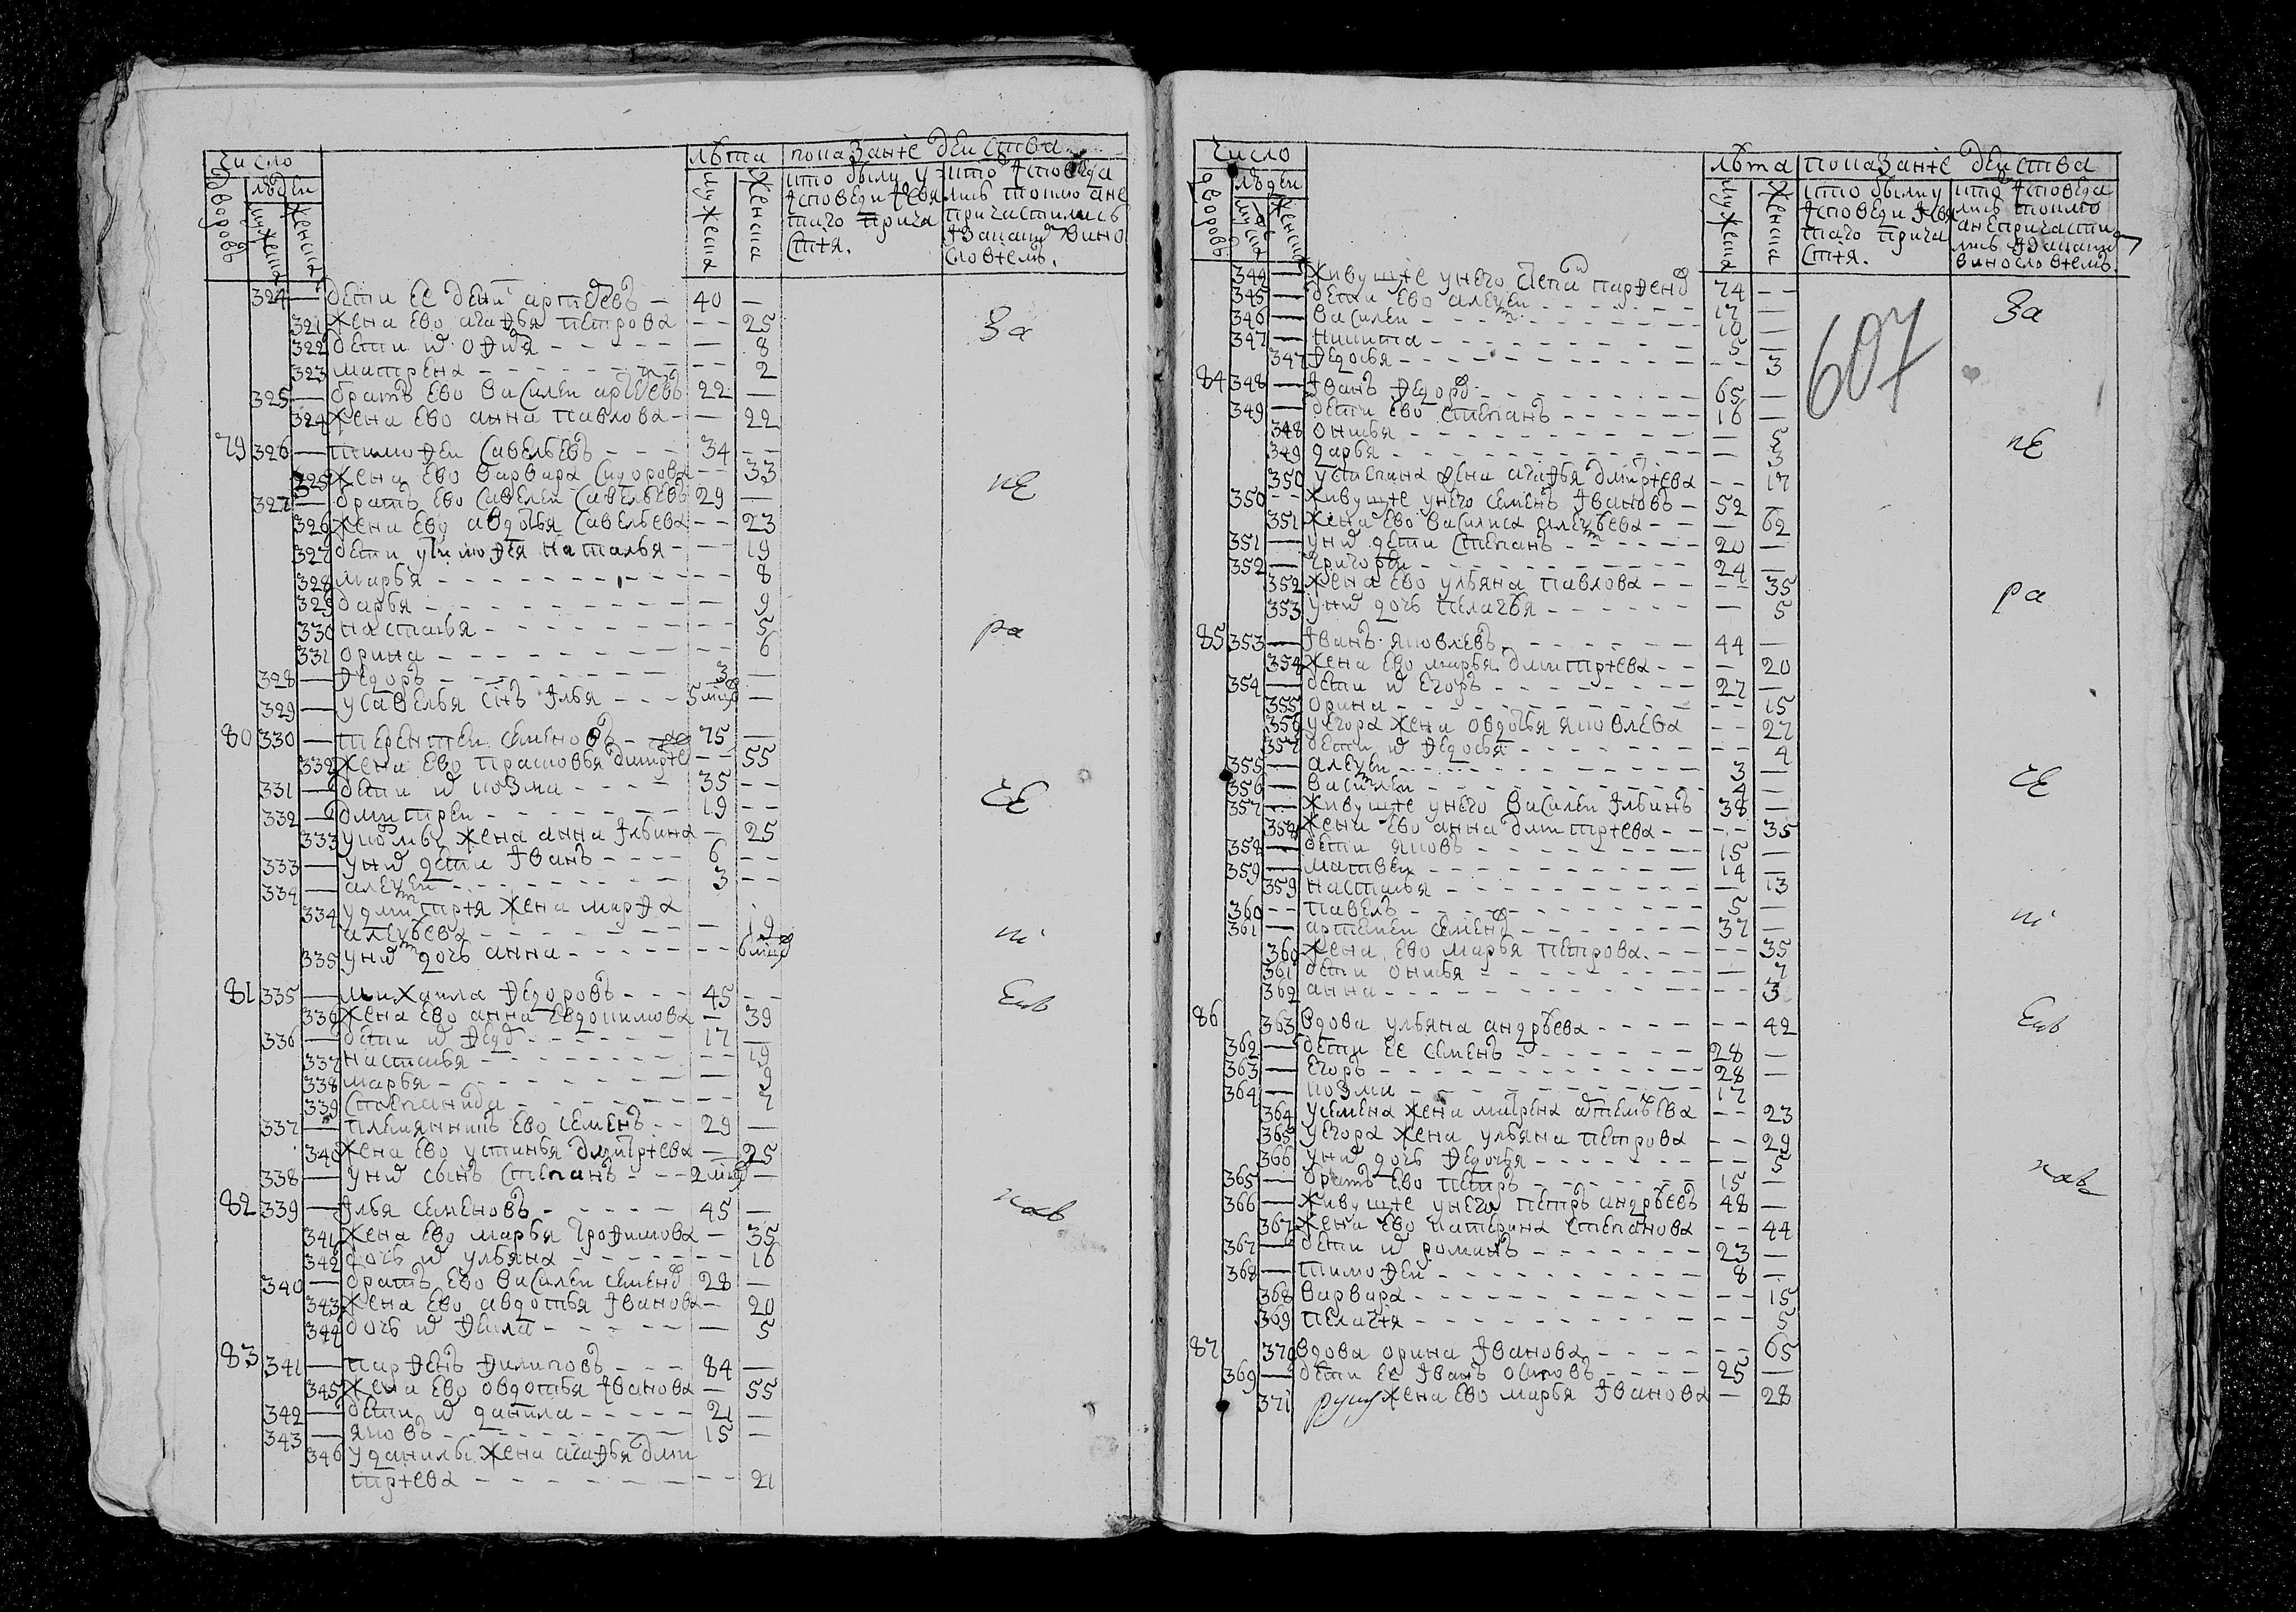 число
дворовъ
людеи
мужеска
женска
лѣта
мужеска
женска
показанїе деиства
кто были у
ісповеди і свя
таго прича
стїя.
кто ісповеда
лись токмо а не
причастились
і за каким вино
словїемъ.
324 — дети ее дени артемьевъ 40 —
321 жена ево агафья петрова — 25
322 дети их офимя — 8
323 матрена — 2
325 — братъ ево василеи артемьевъ 22 —
324 жена ево анна павлова — 22
79 326 — тимофеи савельевъ 34 —
325 жена ево варвара сидорова — 33
327 — братъ ево савелеи савельевъ 29 —
326 жена ево авдотья савельева — 23
327 дети у тимофея наталья — 19
328 марья — 8
329 дарья — 9
330 настасья — 5
331 орина — 6
328 — федоръ 3 —
329 — у савелья снъ илья 5 мцъ —
80 330 — терентеи семеновъ 75 —
332 жена ево прасковья дмитрїе — 55
331 — дети их козма 35 —
332 — дмитреи 19 —
333 у козмы жена анна ильина — 25
333 — у них дети иванъ 6 —
334 — алексеи 3 —
334 у дмитрїя жена марфа
алексѣева — 19
335 у них дочь анна — 6 мцъ
81 335 — михаила федоровъ 45 —
336 жена ево анна евдокимова — 39
336 — дети их федор 17 —
337 настасья — 19
338 марья — 9
339 степанида — 7
337 — племянникъ ево семенъ 29 —
340 жена ево устинья дмитрїева — 25
338 — у них сынъ степанъ 2 мцъ —
82 339 — илья семеновъ 45 —
341 жена ево марья трофимова — 35
342 дочь их ульяна — 16
340 — братъ ево василеи семенов 28 —
343 жена ево авдотья иванова — 20
344 дочь их фекла — 5
83 341 — парфенъ филиповъ 84 —
345 жена ево овдотья иванова — 55
342 — дети их данила 21 —
343 — яковъ 15 —
346 у данилы жена агафья дми
трїева — 21
за
не
ра
че
нї
емъ
как
число
дворовъ
людеи
мужеска
женска
лѣта
мужеска
женска
показанїе деиства
кто были у
ісповеди і свя
таго прича
стїя.
кто ісповеда
лись токмо
а не причасти
лись і за каким
винословїемъ.
344 — живущїе у него парфенов 74 —
345 — дети ево алексеи 17 —
346 — василеи 10 —
347 — никита 5 —
347 федосья — 3
84 348 — иванъ федоров 65 —
349 — дети ево степанъ 16 —
348 онисья — 5
349 дарья — 3
350 у степана жена агафья дмитрїева — 17
350 — живущїе у него семенъ ивановъ 52 —
351 жена ево василиса алексѣева — 62
351 — у них дети степанъ 20 —
352 — григореи 24 —
352 жена ево ульяна павлова — 35
353 у них дочь пелагѣя — 5
85 353 — иванъ яковлевъ 44 —
354 жена ево марья дмитрїева — 20
354 — дети их егоръ 27 —
355 орина — 15
356 у егора жена овдотья яковлева — 27
357 дети их федосья — 4
355 — алексеи 3 —
356 — василеи —
357 — живущїе у него василеи ильинъ 38 —
358 жена ево анна дмитрїева — 35
358 — дети яковъ 15 —
359 — матвеи 14 —
359 настасья — 13
360 — павелъ 5 —
361 — артемеи семенов 37 —
360 жена ево марья петрова — 35
361 дети онисья — 7
362 анна — 3
86 363 вдова ульяна андрѣева — 42
362 — дети ее семенъ 28 —
363 — егоръ 28 —
364 — козма 17 —
364 у семена жена матрена артемьева — 23
365 у егора жена ульяна петрова — 29
366 у них дочь федосья — 5
365 — братъ ево петръ 15 —
366 — живущїе у него петръ андрѣевъ 48 —
367 жена ево катерина степанова — 44
367 — дети их романъ 23 —
368 — тимофеи 8 —
368 варвара — 15
369 пелагїя — 5
87 370 вдова орина иванова — 65
369 — дети ее иванъ осиповъ 25 —
371 жена ево марья иванова — 28
607
за
не
ра
че
нї
емъ